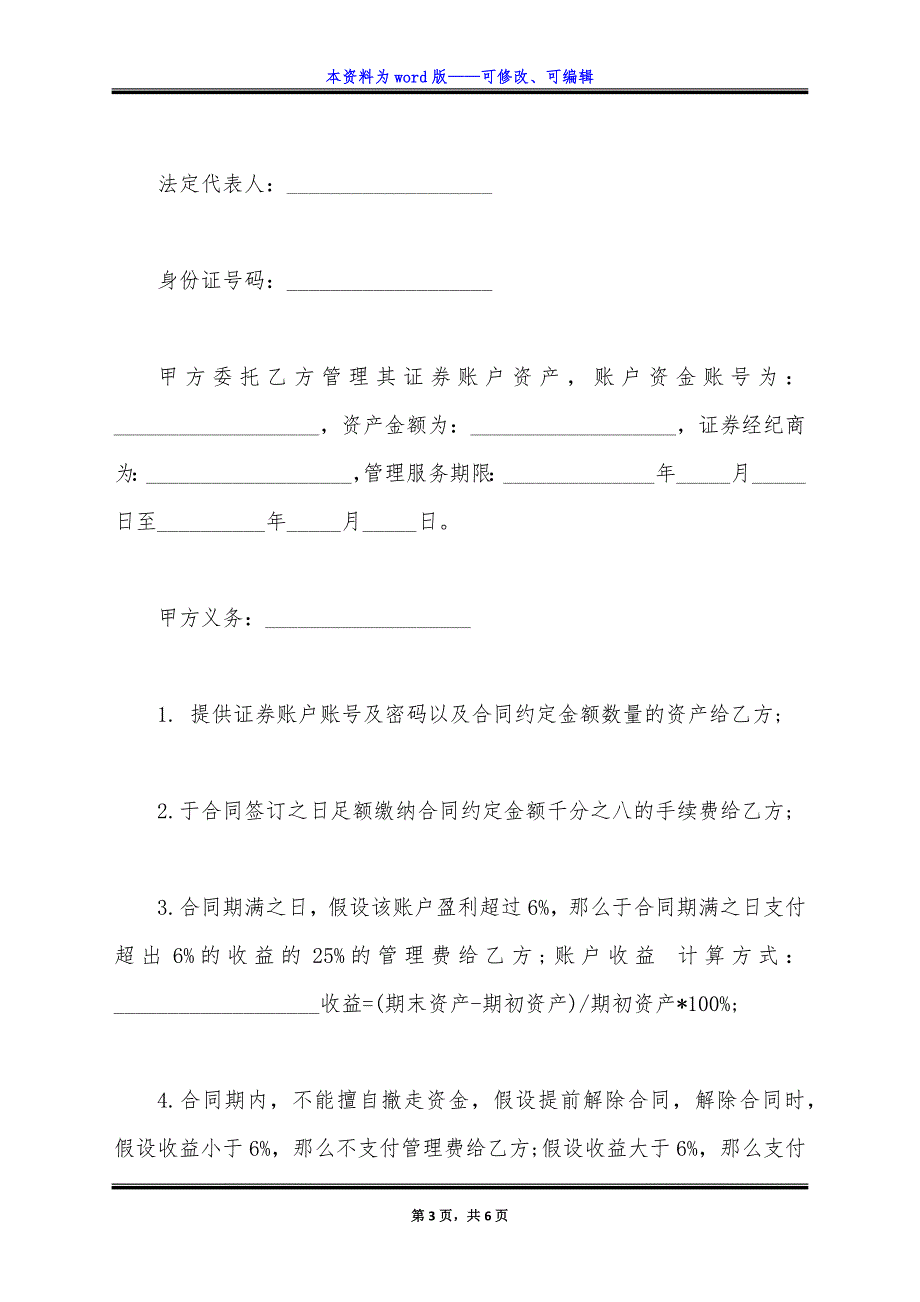 本资料为 word 版——可修改、可编辑
法定代表人：___________________
身份证号码：___________________
甲方委托乙方管理其证券账户资产，账户资金账号为：
___________________，资产金额为：___________________，证券经纪商
为：___________________，管理服务期限：______________年_____月_____
日至__________年_____月_____日。
甲方义务：___________________
1. 提供证券账户账号及密码以及合同约定金额数量的资产给乙方；
2.于合同签订之日足额缴纳合同约定金额千分之八的手续费给乙方；
3.合同期满之日，假设该账户盈利超过 6%，那么于合同期满之日支付
超出 6%的收益的 25%的管理费给乙方；账户收益 计算方式：
___________________收益=(期末资产-期初资产)/期初资产*100%；
4.合同期内，不能擅自撤走资金，假设提前解除合同，解除合同时，
假设收益小于 6%，那么不支付管理费给乙方；假设收益大于 6%，那么支付
第 3 页，共 6 页